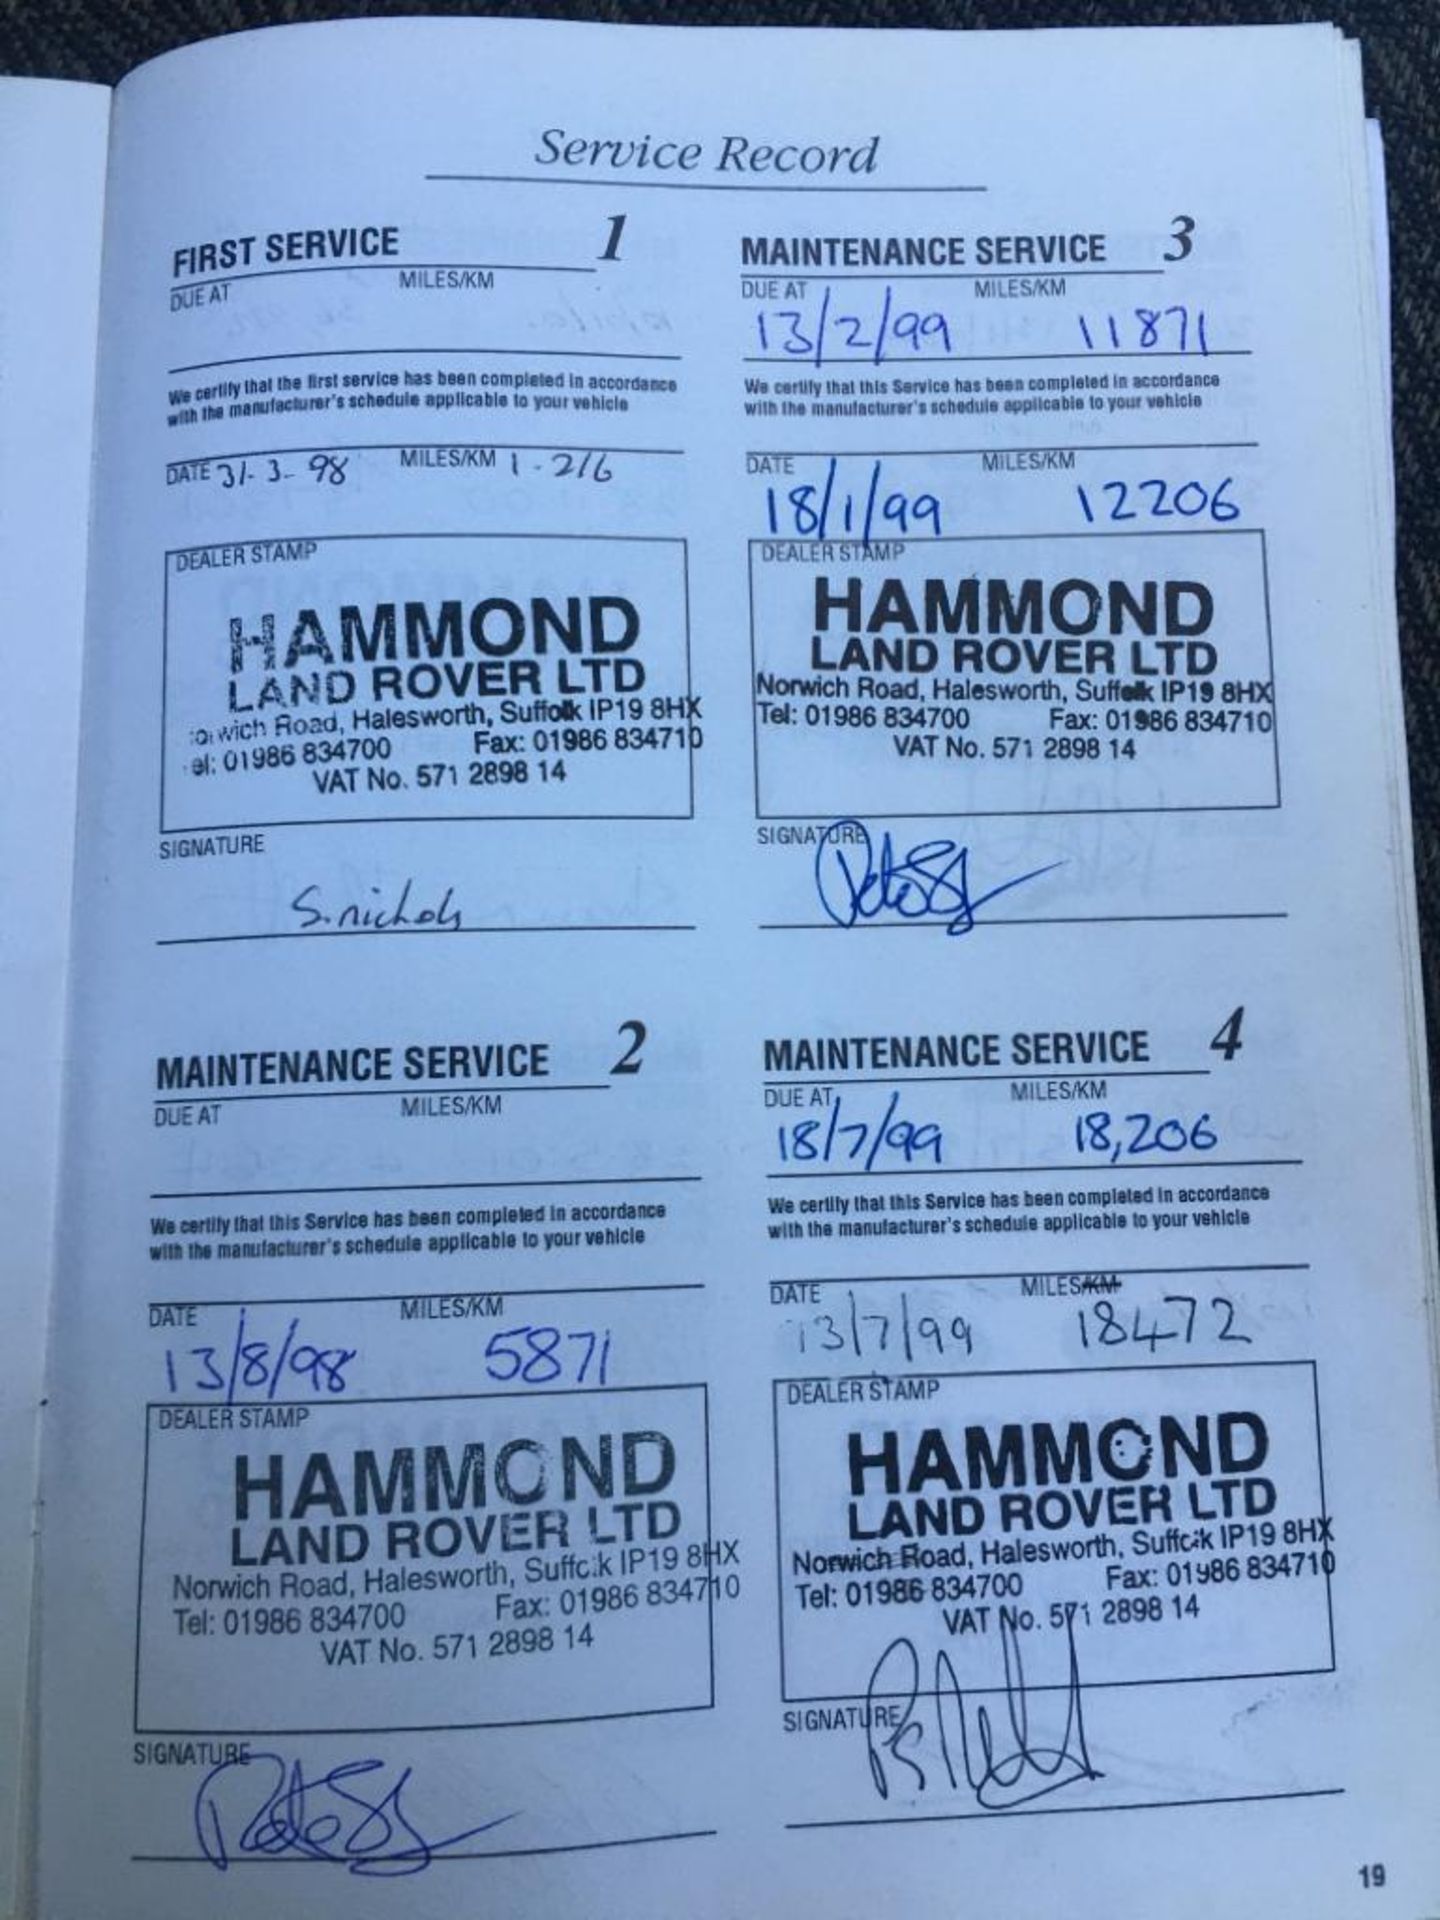 Service Record
FIRST SERVICE 1
DUE AT MILES/KM
We certify that the first service has been completed in accordance
with the manufacturer's schedule applicable to your vehicle
DATE 31-3-98 MILES/KM 1-216
DEALER STAMP
HAMMOND
LAND ROVER LTD
Norwich Road, Halesworth, Suffolk IP19 8HX
Tel: 01986 834700 Fax: 01986 834710
VAT No. 571 2898 14
SIGNATURE
S. nichols
MAINTENANCE SERVICE 2
DUE AT MILES/KM
We certify that this Service has been completed in accordance
with the manufacturer's schedule applicable to your vehicle
DATE MILES/KM
13/8/98 5871
DEALER STAMP
HAMMOND
LAND ROVER LTD
Norwich Road, Halesworth, Suffolk IP19 8HX
Tel: 01986 834700 Fax: 01986 834710
VAT No. 571 2898 14
SIGNATURE
MAINTENANCE SERVICE 3
DUE AT MILES/KM
13/2/99 11871
We certify that this Service has been completed in accordance
with the manufacturer's schedule applicable to your vehicle
DATE MILES/KM
18/1/99 12206
DEALER STAMP
HAMMOND
LAND ROVER LTD
Norwich Road, Halesworth, Suffolk IP19 8HX
Tel: 01986 834700 Fax: 01986 834710
VAT No. 571 2898 14
SIGNATURE
MAINTENANCE SERVICE 4
DUE AT MILES/KM
18/7/99 18,206
We certify that this Service has been completed in accordance
with the manufacturer's schedule applicable to your vehicle
DATE MILES/KM
13/7/99 18472
DEALER STAMP
HAMMOND
LAND ROVER LTD
Norwich Road, Halesworth, Suffolk IP19 8HX
Tel: 01986 834700 Fax: 01986 834710
VAT No. 571 2898 14
SIGNATURE
19